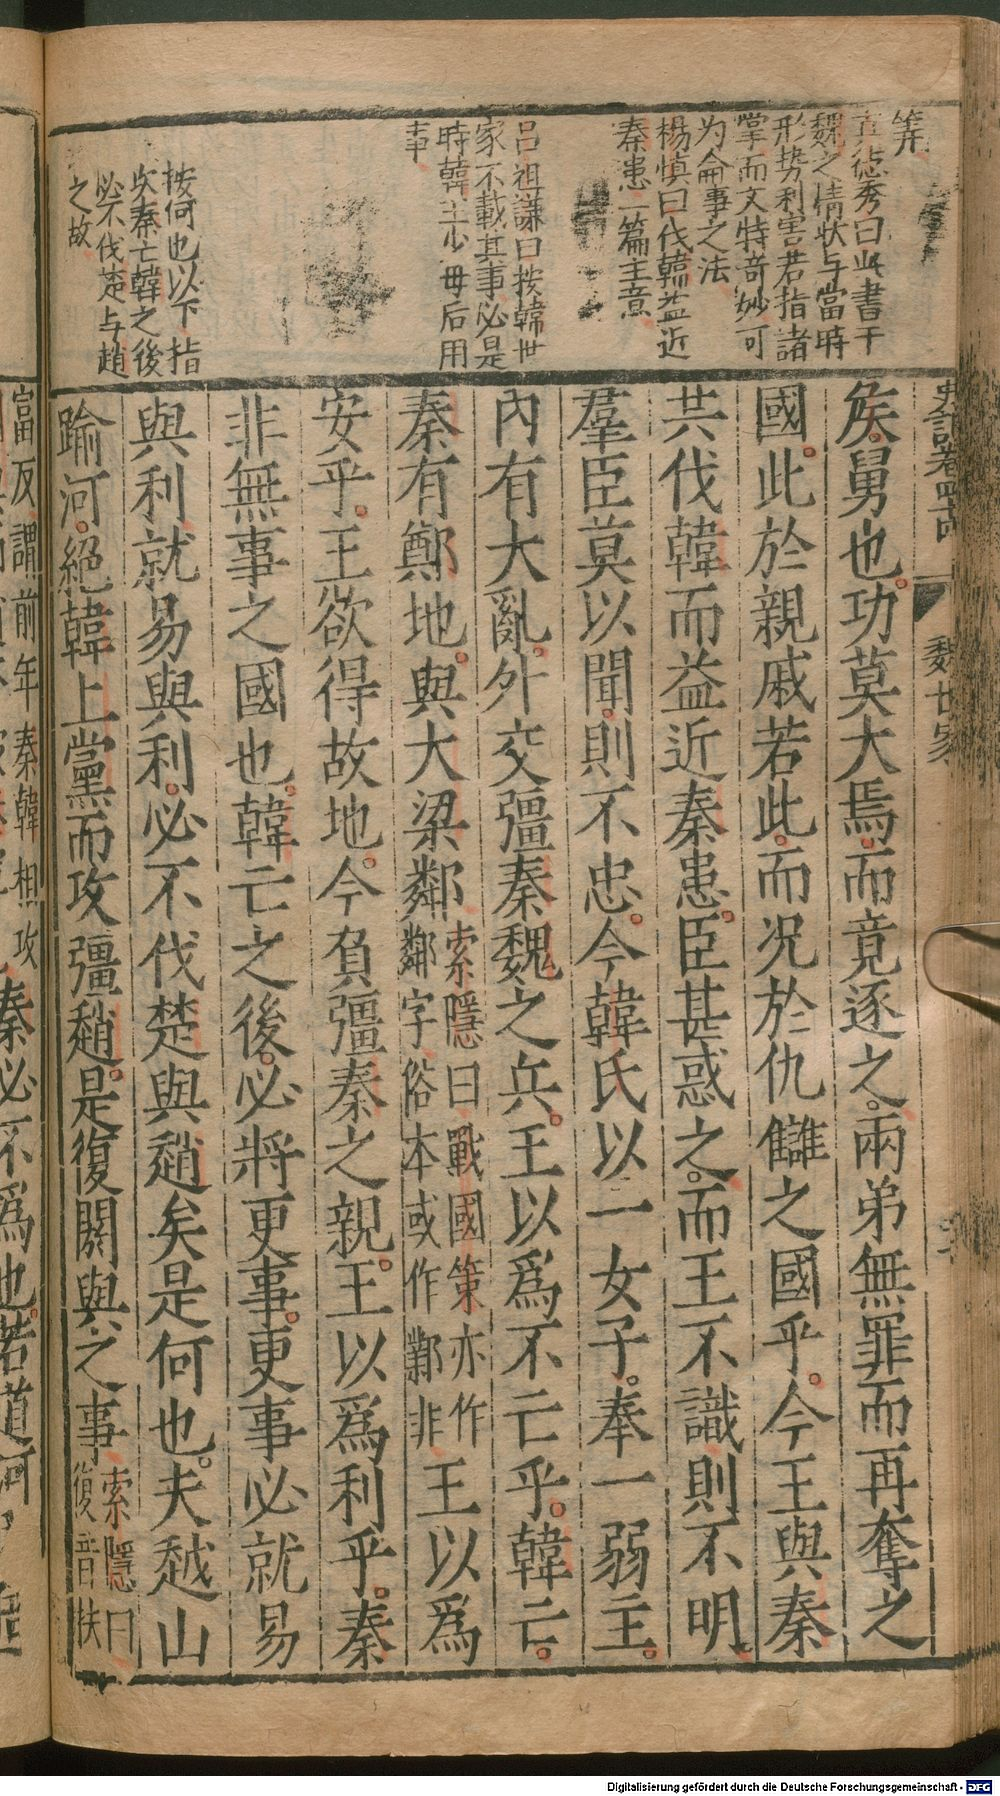 筭
真德秀曰此書于
魏之情状与當時
形势利害若指諸
掌而文特竒妙可
为侖事之法
楊慎曰伐韓益近
秦患一篇主意
吕祖謙曰按韓世
家不載其事必是
時韓主少母后用
事
按何也以下指
必不伐楚与趙
之故
史記卷四十四
魏世家
矦舅也功莫大焉而竟逐之兩弟無罪而再奪之
國此於親戚若此而况於仇讎之國乎今王與秦
共伐韓而益近秦患臣甚惑之而王不識則不明
羣臣莫以聞則不忠今韓氏以一女子奉一弱主
內有大亂外交彊秦魏之兵王以爲不亡乎韓亡
秦有鄭地與大梁鄰索隱曰戰國策亦作鄰字俗本或作鄴非王以爲
安乎王欲得故地今負彊秦之親王以爲利乎秦
非無事之國也韓亡之後必將更事更事必就易
與利就易與利必不伐楚與趙矣是何也夫越山
踰河絕韓上黨而攻彊趙是復閼與之事索隱曰復音扶
富反謂前年秦韓相攻
秦必不爲也若道河
Digitalisierung gefördert durch die Deutsche Forschungsgemeinschaft - DFG